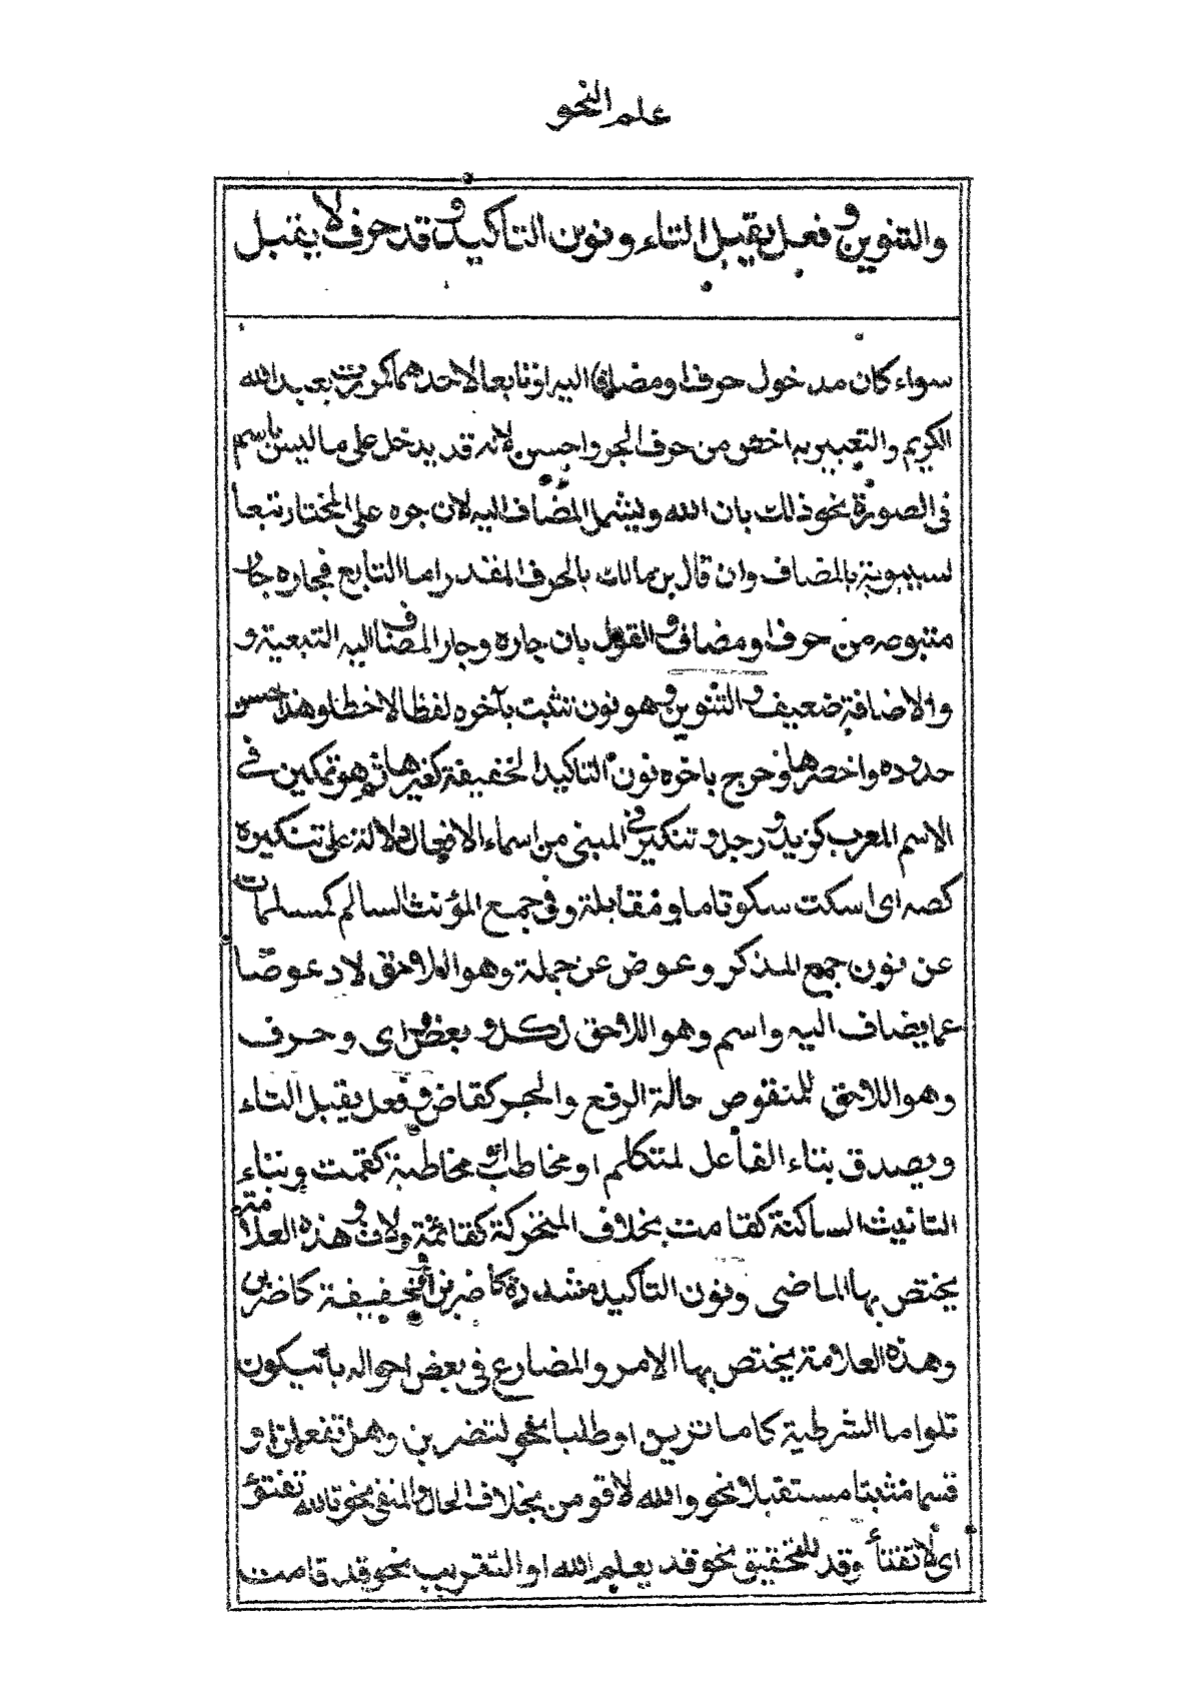 علم النحو
والتنوين وفعل يقبل التاء ونون التاكيد وقد وحرف لا يقبل
سواء كان مدخول حرف او مضاف اليه او تابعا لاحدهما كمررت بعبد الله
الكريم والتعبير به اخص من حرف الجر واحسن لانه قد يدخل على ما ليس باسم
فى الصورة نحو ذلك بان الله وليشمل المضاف اليه لان جره على المختار تبعا
لسيبوية بالمضاف وان قال بن مالك بالحرف المقدر اما التابع فجاره جار
متبوعه من حرف او مضاف والقول بان جاره وجار المضاف اليه التبعية و
والاضافة ضعيف والتنوين وهو نون تثبت بآخره لفظا لا خطا وهذا احسن
حدوده واخصرها وخرج باخره نون التاكيد الخفيفة كغيرها ثم هو تمكين فى
الاسم المعرب كزيد ورجل وتنكير فى المبنى من اسماء الافعال دلالة على تنكيره
كصه اى اسكت سكوتا ما ومقابلة وفى جمع المؤنث السالم كمسلمات
عن نون جمع المذكر وعوض عن جملة وهو اللاحق لاذ عوضا
عما يضاف اليه واسم وهو اللاحق لكل وبعض واى وحرف
وهو اللاحق للمنقوص حالة الرفع والجر كقاض وفعل يقبل التاء
ويصدق بتاء الفاعل لمتكلم او مخاطب او مخاطبة كقمت وبتاء
التانيث الساكنة كقامت بخلاف المتحركة كقائمة ولات وهذه العلامة
يختص بها الماضى ونون التاكيد مشددة كاضربن او خفيفة كاضربن
وهذه العلامة يختص بها الامر والمضارع فى بعض احواله بان يكون
تلو اما الشرطية كاما ترين او طلبا نحو لتضربن وهل تفعلن او
قسما مثبتا مستقبلا نحو والله لاقومن بخلاف الحال والمنفى نحو تالله تفتؤ
اى لا تفتأ وقد للتحقيق نحو قد يعلم الله او التقريب نحو قد قامت